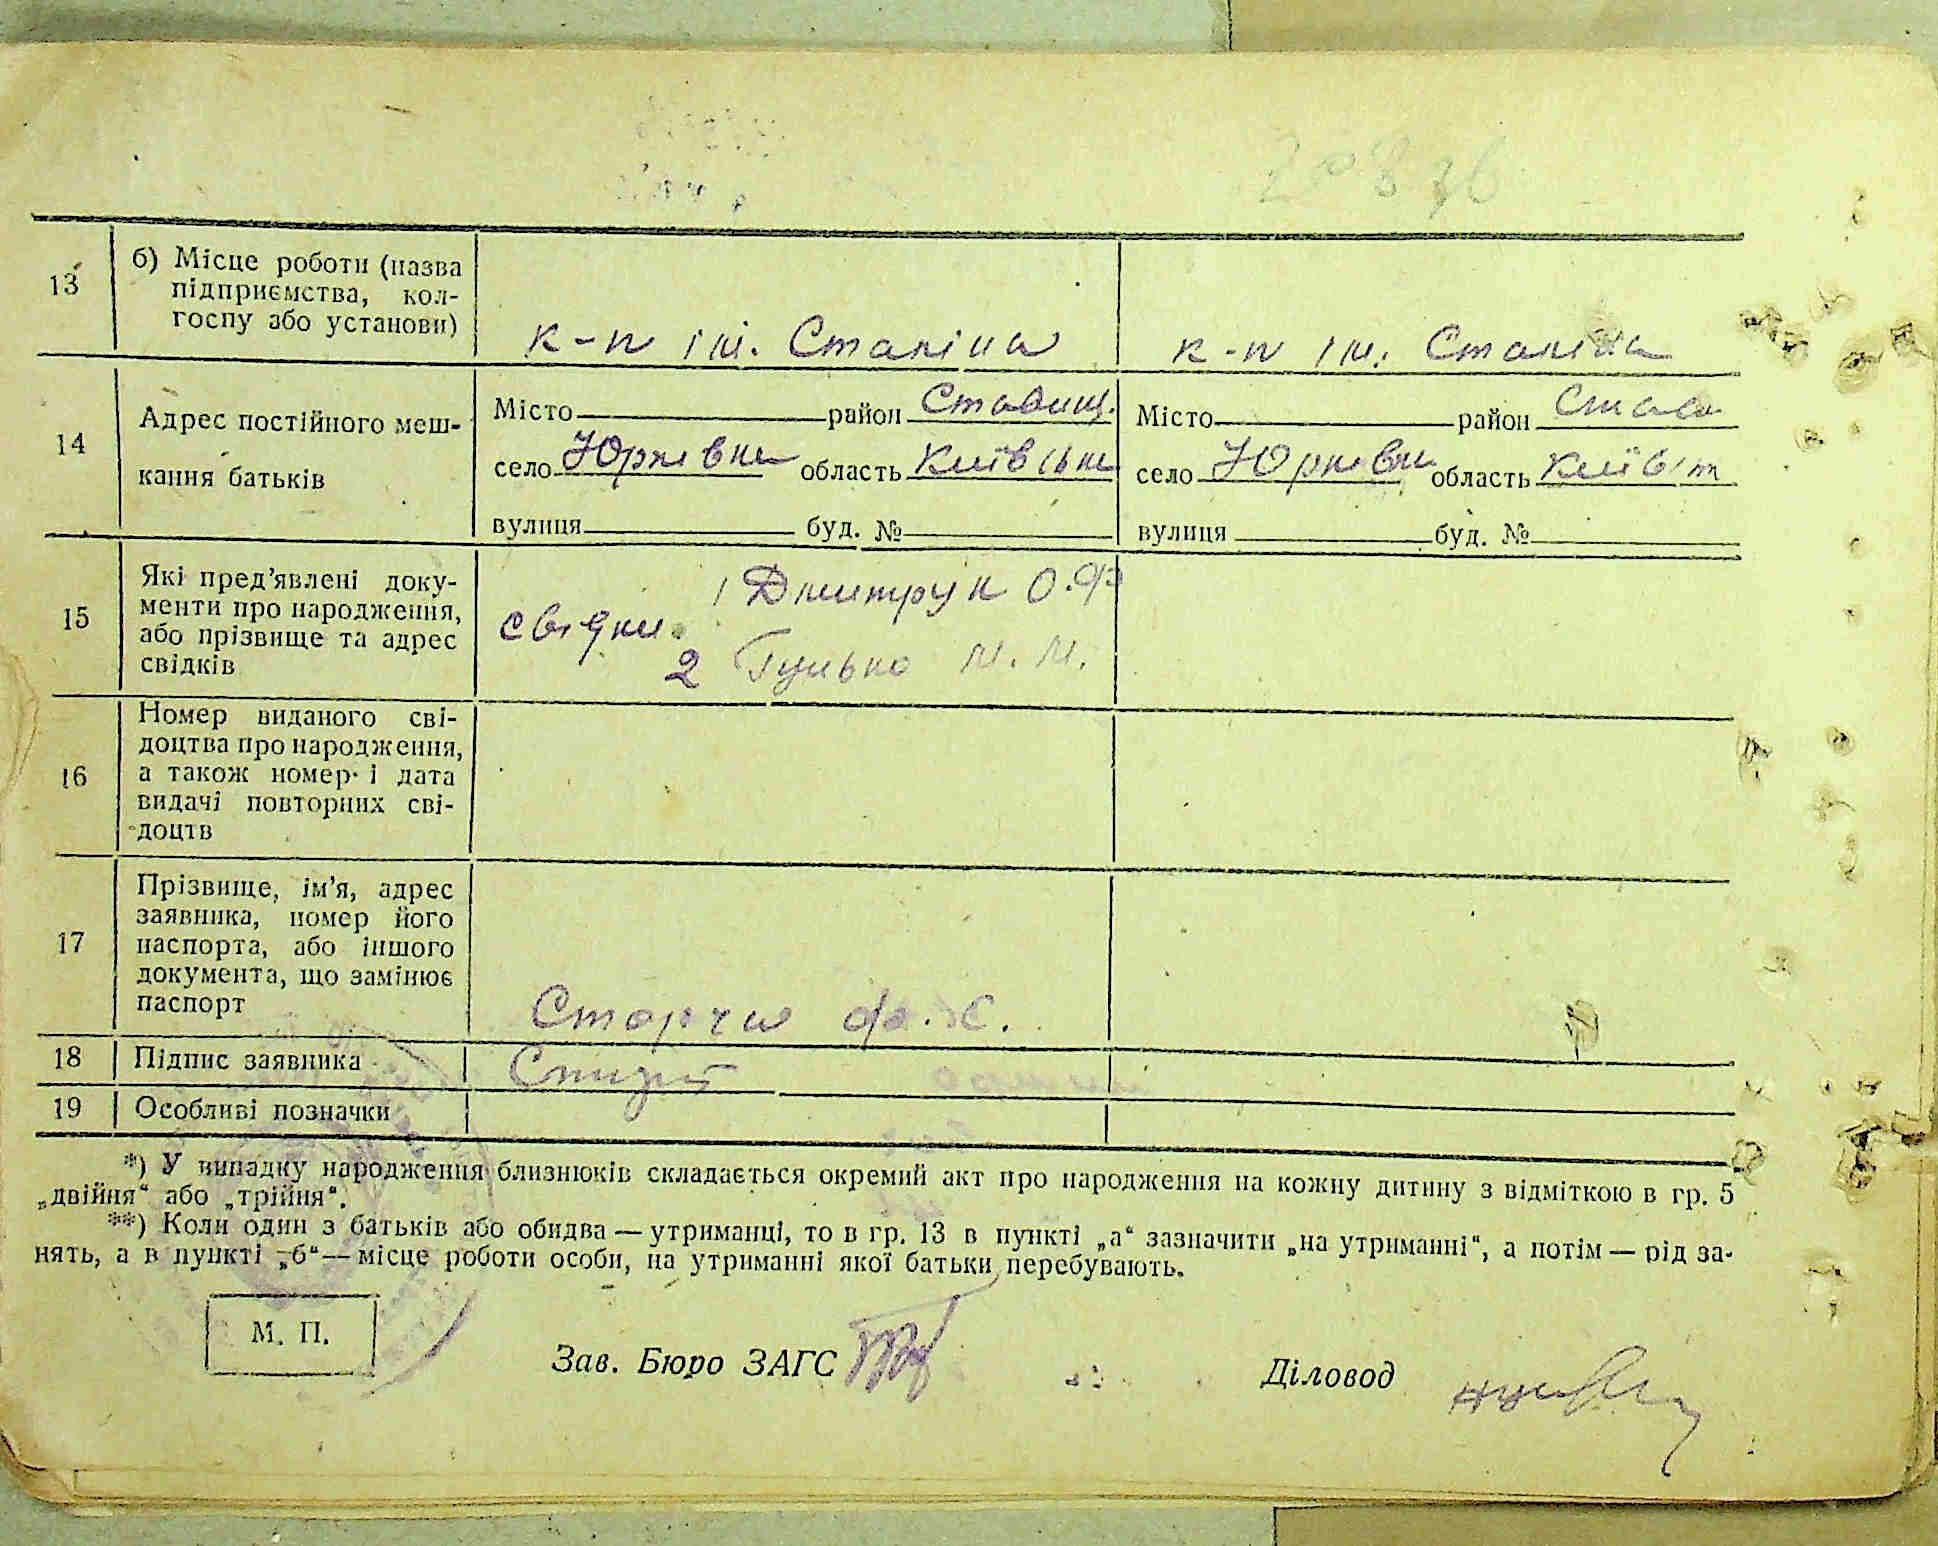 13
б) Місце роботи (назва
підприємства, кол-
госпу або установи)
к-п ім. Сталіна
к-п ім. Сталіна
14
Адрес постійного меш-
кання батьків
Місто район Ставищ.
село Юрківка область Київська
вулиця буд. №
Місто район Став
село Юрківка область Київськ
вулиця буд. №
15
Які пред’явлені доку-
менти про народження,
або прізвище та адрес
свідків
свідки
1 Дмитрук О. Ф
2 Гулько М. М.
16
Номер виданого сві-
доцтва про народження,
а також номер і дата
видачі повторних сві-
доцтв
17
Прізвище, ім’я, адрес
заявника, номер його
паспорта, або іншого
документа, що замінює
паспорт
Сторча
18
Підпис заявника
19
Особливі позначки
*) У випадку народження близнюків складається окремий акт про народження на кожну дитину з відміткою в гр. 5
„двійня“ або „трійня“.
**) Коли один з батьків або обидва — утриманці, то в гр. 13 в пункті „а“ зазначити „на утриманні“, а потім — рід за-
нять, а в пункті „б“ — місце роботи особи, на утриманні якої батьки перебувають.
М. П.
Зав. Бюро ЗАГС
Діловод